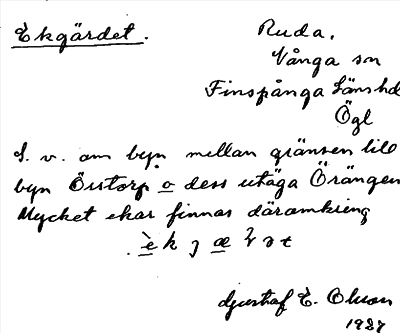 Ekgärdet.
Ruda,
Vånga sn
Finspånga Länshd
Ögl
S. v. om byn mellan gränsen till
byn Örstorp o dess utäga Örängen
Mycket ekar finnas däromkring
Gustaf E. Olson
1927